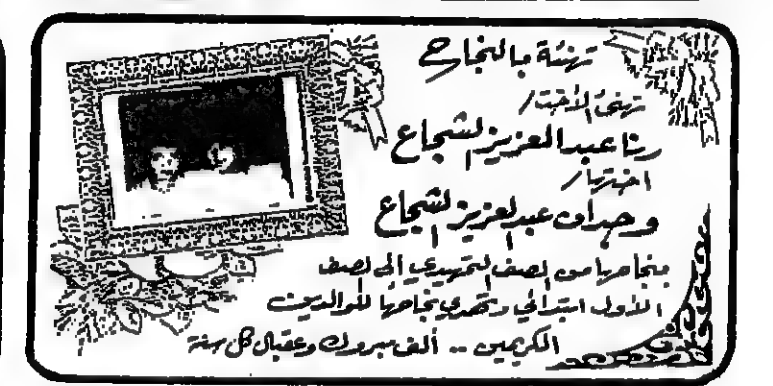 تهنئة بالنجاح
تهنئ الأخت /
رنا عبدالعزيز الشجاع
اختها /
وجدان عبدالعزيز الشجاع
بنجاحها من الصف التمهيدي إلى الصف
الأول ابتدائي وتهدي نجاحها للوالدين
الكريمين .. ألف مبروك وعقبال كل سنة